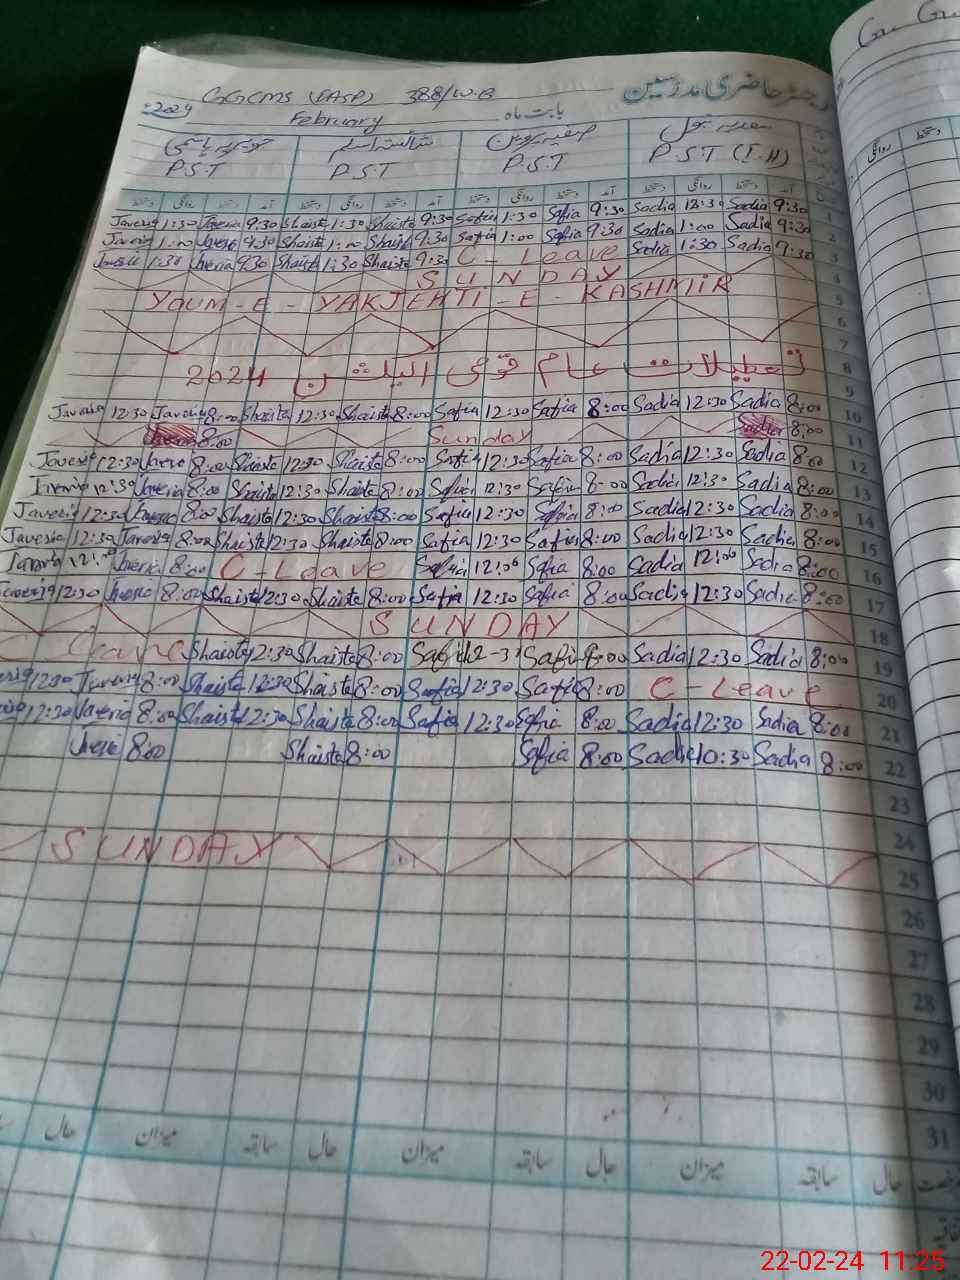 رجسٹر حاضری مدرسین
GGCMS (PASP) 388/W.B
2024
February بابت ماہ
سعدیہ بتول صفیہ پروین شائستہ اسلم جویریہ یاسمین
P.S.T P.S.T P.S.T P.S.T (I.H)
آمد دستخط روانگی دستخط آمد دستخط روانگی دستخط آمد دستخط روانگی دستخط آمد دستخط روانگی دستخط
Javeria 1:30 Javeria 9:30 Shaista 1:30 Shaista 9:30 Safia 1:30 Safia 9:30 Sadia 1:30 Sadia 9:30 1
Javeria 1:00 Javeria 9:30 Shaista 1:00 Shaista 9:30 Safia 1:00 Safia 9:30 Sadia 1:00 Sadia 9:30 2
Javeria 1:30 Javeria 9:30 Shaista 1:30 Shaista 9:30 C-Leave Sadia 1:30 Sadia 9:30 3
SUNDAY 4
YOUM-E-YAKJEHTI-E-KASHMIR 5
6
7
تعطیلات عام قومی الیکشن 2024 8
9
Javeria 12:30 Javeria 8:00 Shaista 12:30 Shaista 8:00 Safia 12:30 Safia 8:00 Sadia 12:30 Sadia 8:00 10
Javeria 8:00 Sunday Sadia 8:00 11
Javeria 12:30 Javeria 8:00 Shaista 12:30 Shaista 8:00 Safia 12:30 Safia 8:00 Sadia 12:30 Sadia 8:00 12
Javeria 12:30 Javeria 8:00 Shaista 12:30 Shaista 8:00 Safia 12:30 Safia 8:00 Sadia 12:30 Sadia 8:00 13
Javeria 12:30 Javeria 8:00 Shaista 12:30 Shaista 8:00 Safia 12:30 Safia 8:00 Sadia 12:30 Sadia 8:00 14
Javeria 12:30 Javeria 8:00 Shaista 12:30 Shaista 8:00 Safia 12:30 Safia 8:00 Sadia 12:30 Sadia 8:00 15
Javeria 12:00 Javeria 8:00 C-Leave Safia 12:00 Safia 8:00 Sadia 12:00 Sadia 8:00 16
Javeria 12:30 Javeria 8:00 Shaista 12:30 Shaista 8:00 Safia 12:30 Safia 8:00 Sadia 12:30 Sadia 8:00 17
SUNDAY 18
Shaista 12:30 Shaista 8:00 Safia 12-31 Safia 8:00 Sadia 12:30 Sadia 8:00 19
12:30 Javeria 8:00 Shaista 12:30 Shaista 8:00 Safia 12:30 Safia 8:00 C-Leave 20
12:30 Javeria 8:00 Shaista 12:30 Shaista 8:00 Safia 12:30 Safia 8:00 Sadia 12:30 Sadia 8:00 21
Javeria 8:00 Shaista 8:00 Safia 8:00 Sadia 10:30 Sadia 8:00 22
23
24
SUNDAY 25
26
27
28
29
30
31
حال سابقہ میزان حال سابقہ میزان حال سابقہ میزان حال
22-02-24 11:25